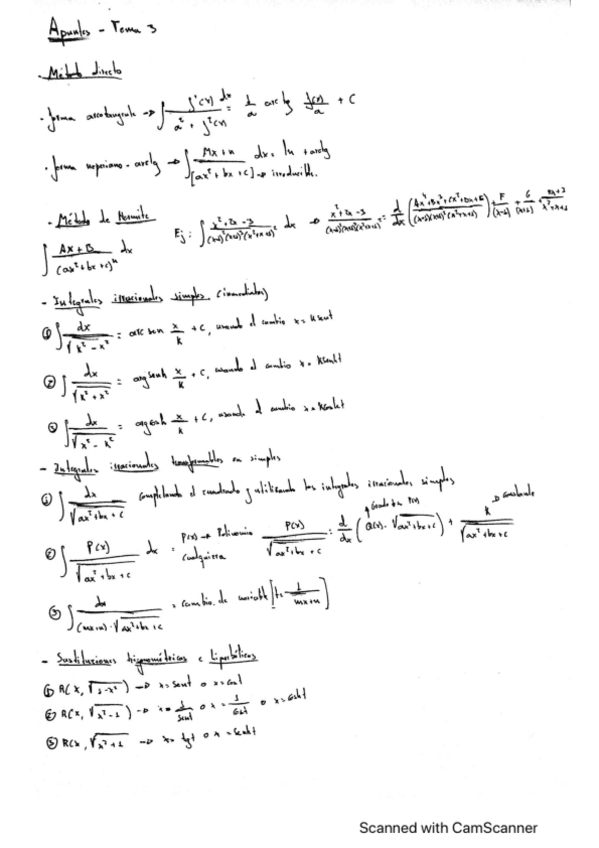 Apuntes - Tema 3
- Método directo
· forma arcotangente → ∫ f'(x) dx / (a² + f²(x)) = 1/a arctg f(x)/a + C
· forma neperiano - arctg → ∫ (Mx+n) / [ax²+bx+c] dx = ln + arctg
→ irreducible.
- Método de Hermite
∫ (Ax+B) / (ax²+bx+c)ⁿ dx
Ej: ∫
- Integrales irracionales simples (inmediatas)
① ∫ dx / √(k²-x²) = arc sen x/k + C, usando el cambio x = k sent
② ∫ dx / √(k²+x²) = argsenh x/k + C, usando el cambio x = k senht
③ ∫ dx / √(x²-k²) = argcosh x/k + C, usando el cambio x = k cosht
- Integrales irracionales transformables en simples
① ∫ dx / √(ax²+bx+c) completando el cuadrado y utilizando las integrales irracionales simples
② ∫ P(x) / √(ax²+bx+c) dx = P(x) → Polinomio cualquiera P(x) / √(ax²+bx+c) = d/dx (Q(x)·√(ax²+bx+c)) + k / √(ax²+bx+c)
③ ∫ dx / ((mx+n)·√(ax²+bx+c)) = cambio de variable [t = 1/(mx+n)]
- Sustituciones trigonométricas e hiperbólicas
① R(x, √(1-x²)) → x = sent o x = cost
② R(x, √(x²-1)) → x = 1/sent o x = 1/cost o x = cosht
③ R(x, √(x²+1) → x = tgt o x = senht
Scanned with CamScanner